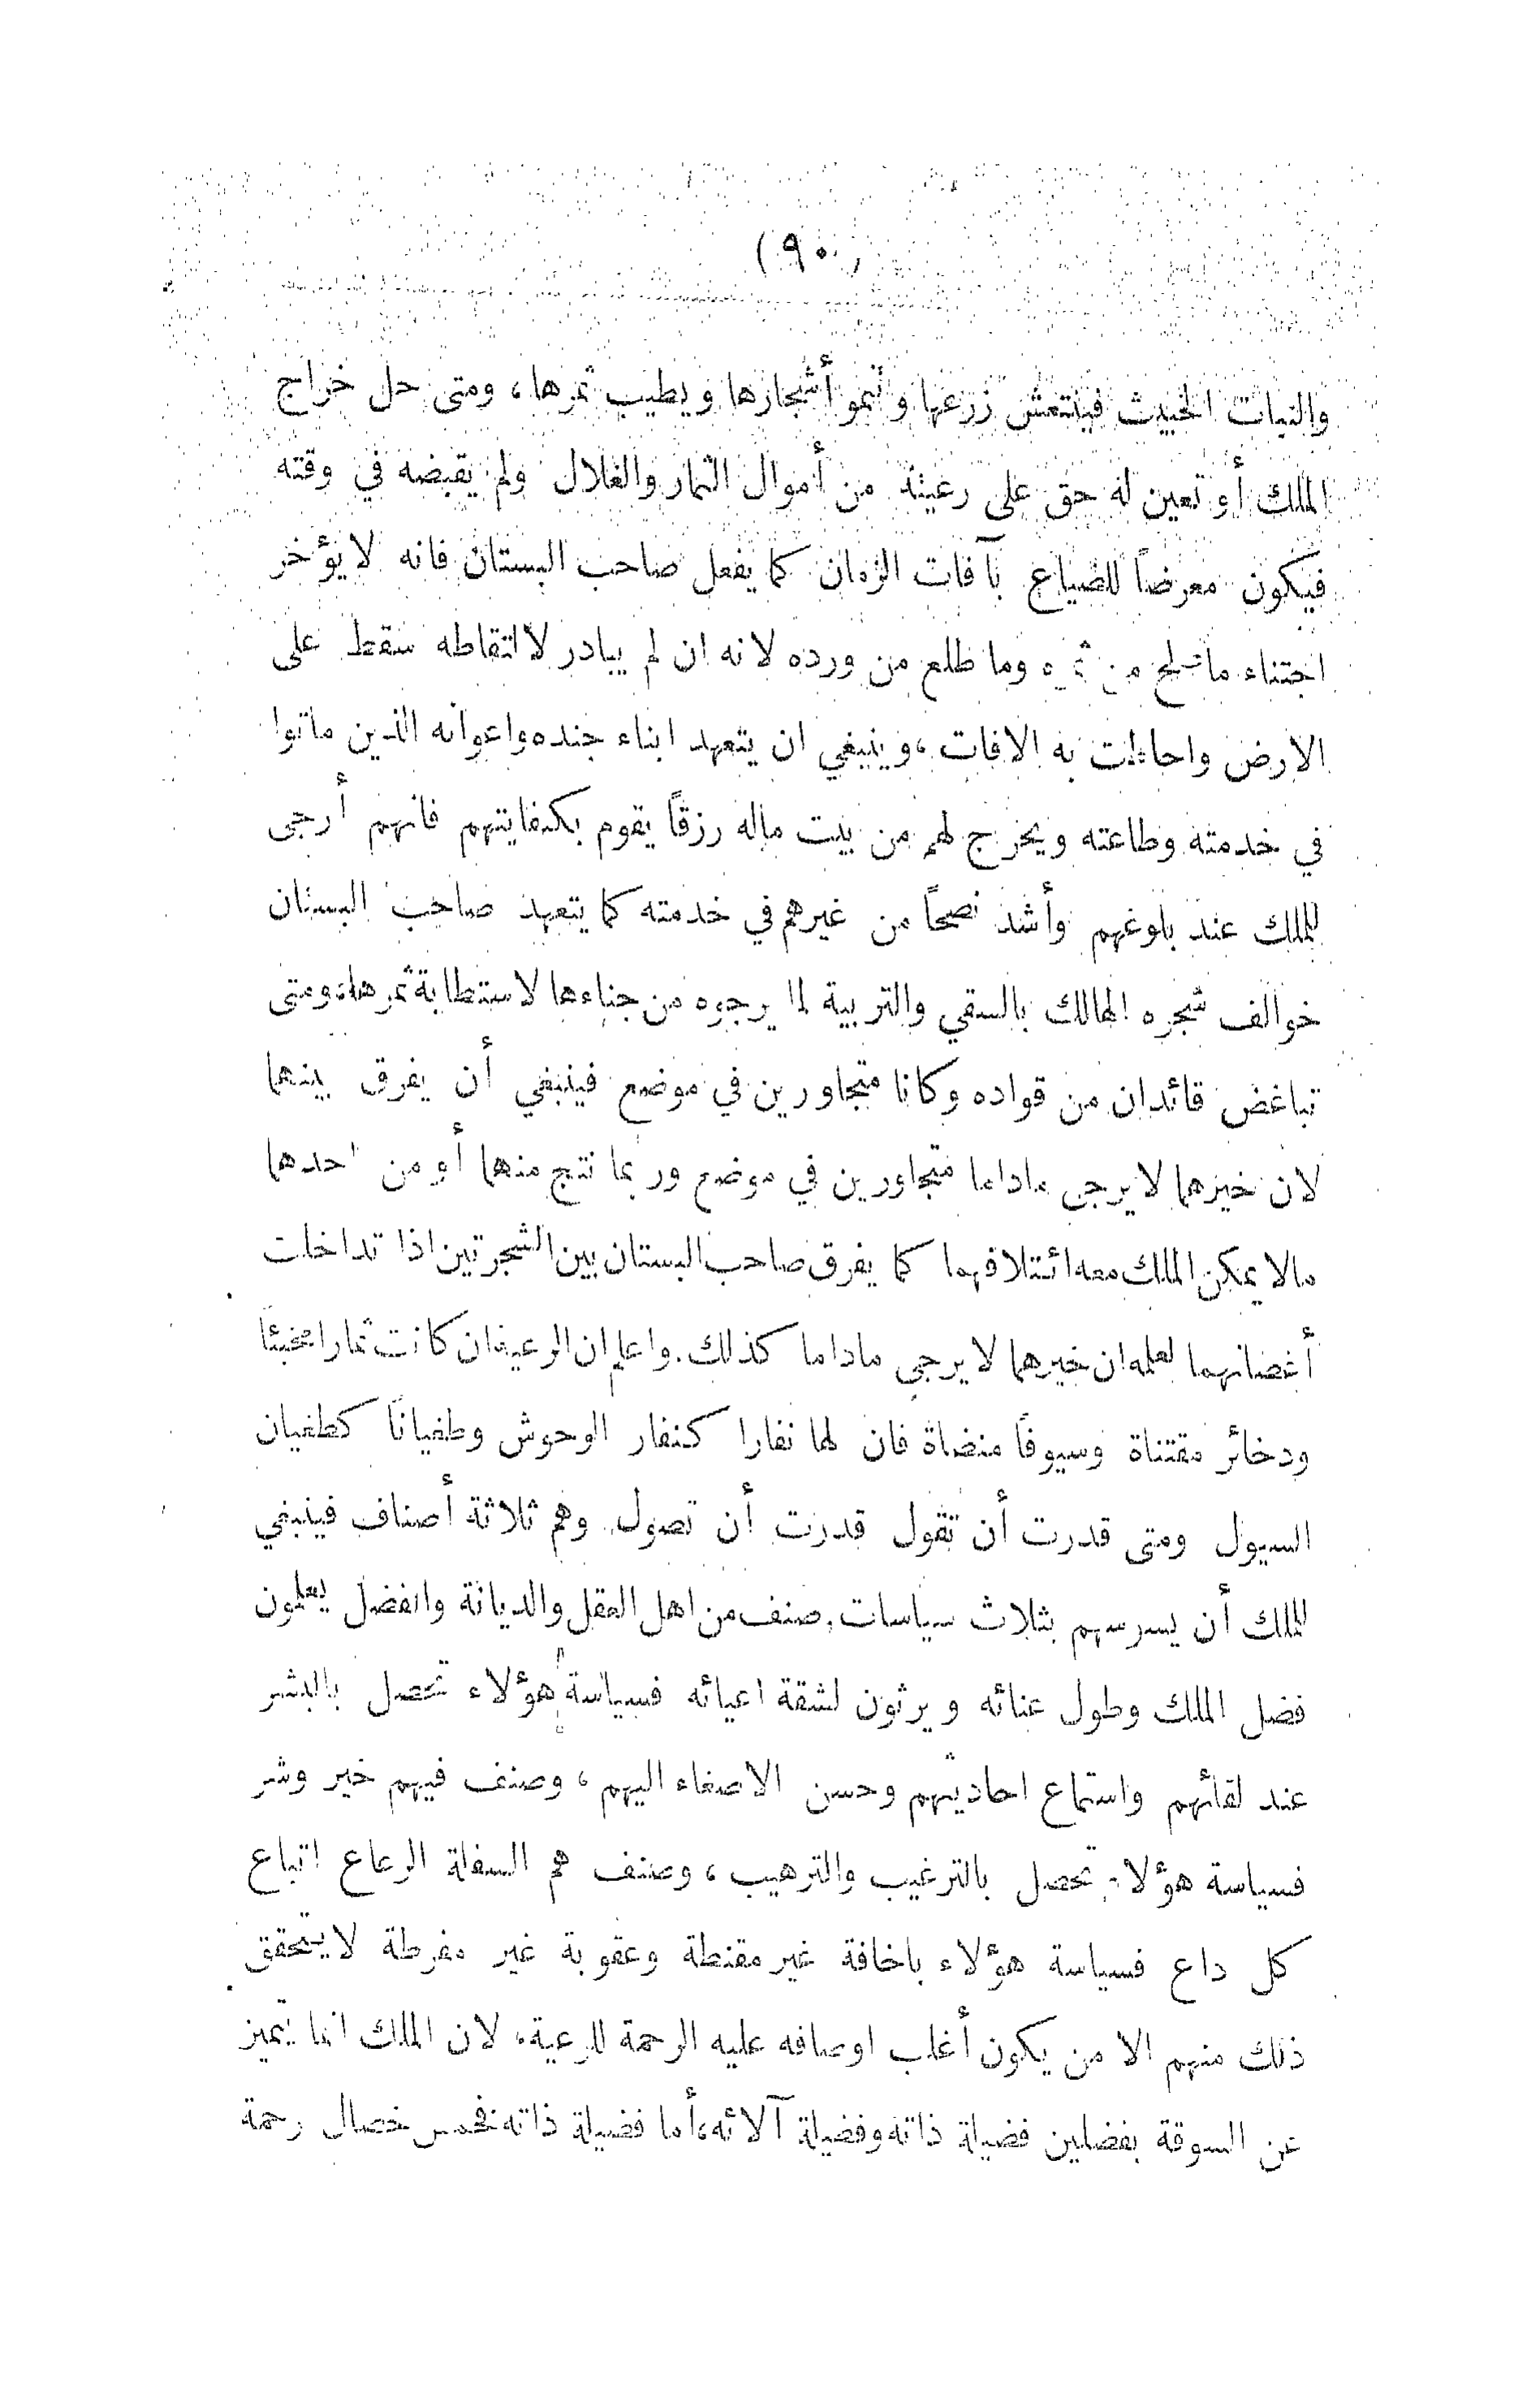 (٩٠)
والنبات الخبيث فينتعش زرعها وتنمو أشجارها ويطيب ثمرها، ومتى حل خراج
الملك أو تعين له حق على رعيته من أموال الثمار والغلال ولم يقبضه في وقته
فيكون معرضاً للضياع بآفات الزمان كما يفعل صاحب البستان فانه لا يؤخر
اجتناء ما من ثمره وما طلع من ورده لانه ان لم يبادر لالتقاطه سقط على
الارض واحاطت به الافات، وينبغي ان يتعهد ابناء جنده واعوانه الذين ماتوا
في خدمته وطاعته ويخرج لهم من بيت ماله رزقاً يقوم بكفايتهم فانهم أرجى
للملك عند بلوغهم وأشد نصحاً من غيرهم في خدمته كما يتعهد صاحب البستان
خوالف شجره الهالك بالسقي والتربية لما يرجوه من جناءها لاستطابة ثمرها، ومتى
تباغض قائدان من قواده وكانا متجاورين في موضع فينبغي أن يفرق بينهما
لان خيرهما لا يرجى ماداما متجاورين في موضع وربما نتج منهما أو من احدهما
مالا يمكن الملك معه ائتلافهما كما يفرق صاحب البستان بين الشجرتين اذا تداخلت
أغصانهما لعلمه ان خيرهما لا يرجى ماداما كذلك. واعلم ان الرعية ان كانت ثمارا مخبئاً
ودخائر مقتناة وسيوفاً منضاة فان لها نفارا كنفار الوحوش وطغياناً كطغيان
السيول ومتى قدرت أن تقول قدرت أن تصول. وهم ثلاثة أصناف فينبغي
للملك أن يسوسهم بثلاث سياسات. صنف من اهل العقل والديانة والفضل يعلمون
فضل الملك وطول عنائه ويرثون لشقة اعيائه فسياسة هؤلاء تحصل بالبشر
عند لقائهم واستماع احاديثهم وحسن الاصغاء اليهم، وصنف فيهم خير وشر
فسياسة هؤلاء تحصل بالترغيب والترهيب، وصنف هم السفلة الرعاع اتباع
كل داع فسياسة هؤلاء باخافة غير مقنطة وعقوبة غير مفرطة لا يتحقق
ذلك منهم الا من يكون أغلب اوصافه عليه الرحمة للرعية، لان الملك انما يتميز
عن السوقة بفضلين فضيلة ذاته وفضيلة آلائه، أما فضيلة ذاته فخمس خصال رحمة